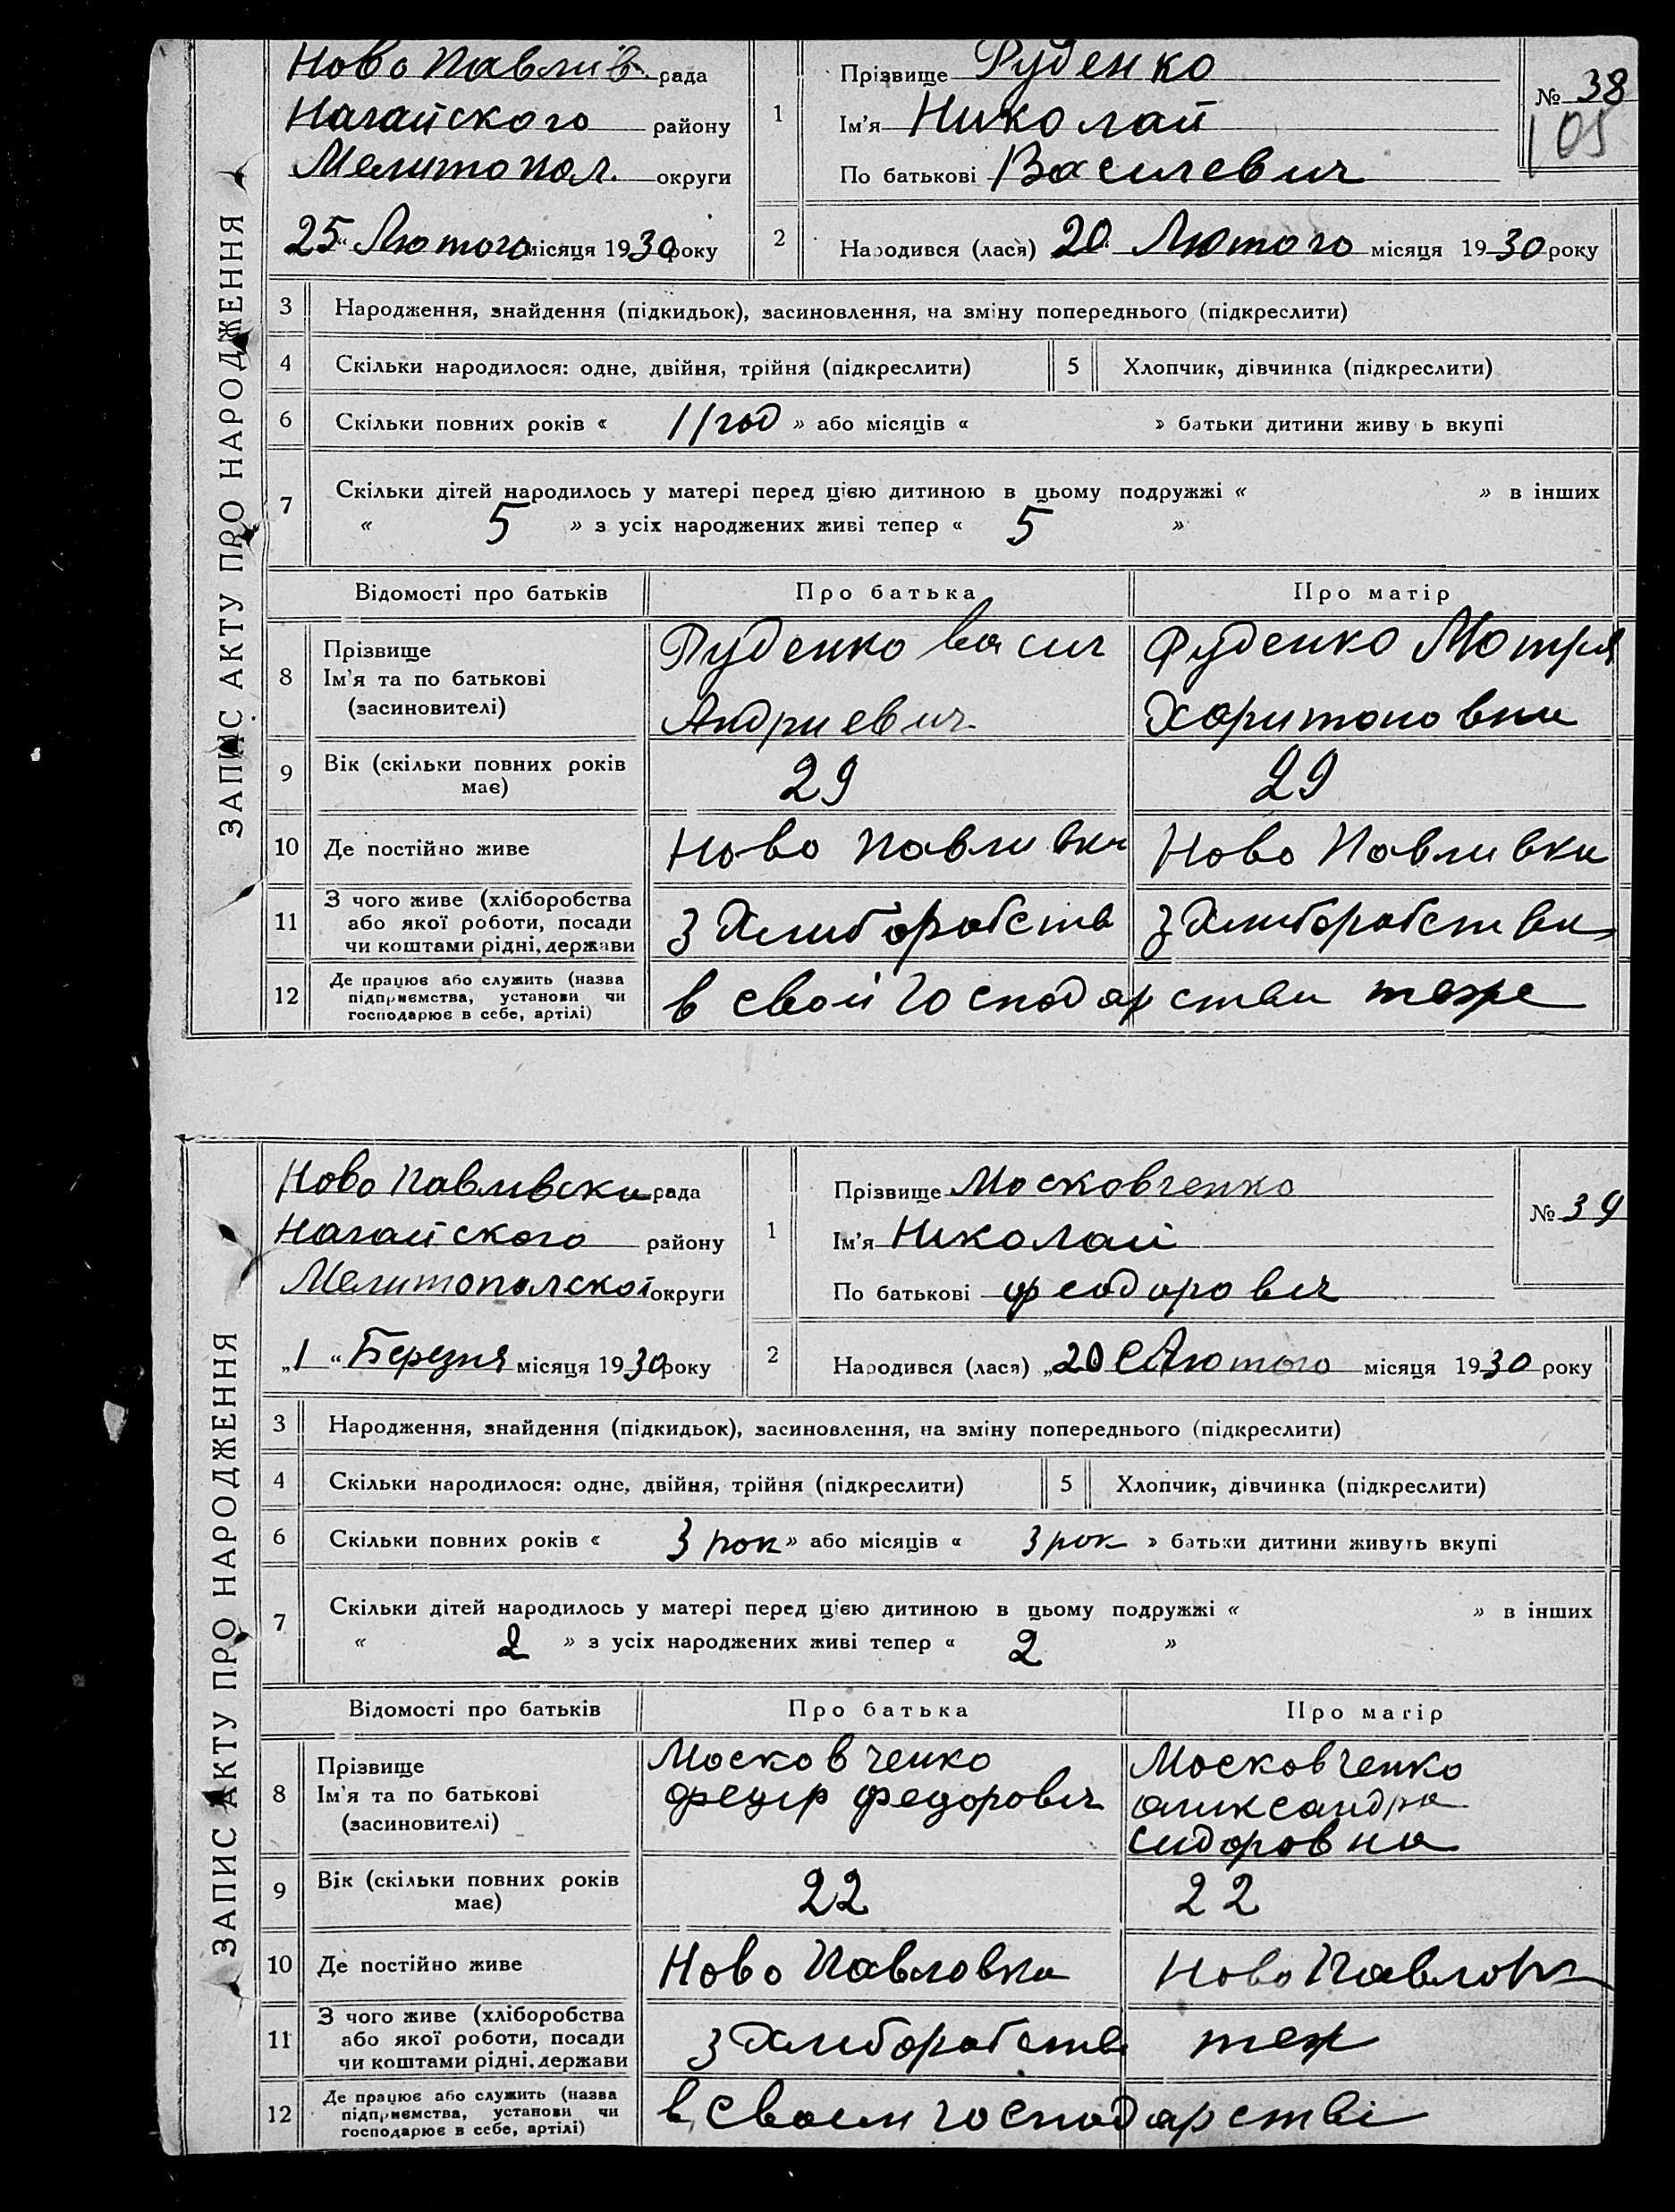 ЗАПИС АКТУ ПРО НАРОДЖЕННЯ
Ново Павлив. рада
Нагайского району
Мелитопол. округи
25 " Лютого місяця 1930 року
1 Прізвище Руденко
Ім'я Николай
По батькові Василевич
№ 38
105
2 Народився (лася) 20 Лютого місяця 1930 року
3 Народження, знайдення (підкидьок), засиновлення, на зміну попереднього (підкреслити)
4 Скільки народилося: одне, двійня, трійня (підкреслити) 5 Хлопчик, дівчинка (підкреслити)
6 Скільки повних років « 11 год » або місяців « » батьки дитини живу ь вкупі
7 Скільки дітей народилось у матері перед цією дитиною в цьому подружжі « » в інших
« 5 » з усіх народжених живі тепер « 5 »
Відомості про батьків Про батька Про матір
8 Прізвище Ім'я та по батькові (засиновителі)
Руденко Васил Андриевич
Руденко Мотря Харитоновни
9 Вік (скільки повних років має) 29 29
10 Де постійно живе Ново Павливки Ново Павливки
11 З чого живе (хліборобства або якої роботи, посади чи коштами рідні, держави
З Хлиборобств З Хлиборобства
12 Де працює або служить (назва підприємства, установи чи господарює в себе, артілі)
в своі господарстви теже
ЗАПИС АКТУ ПРО НАРОДЖЕННЯ
Ново Павливски рада
Нагайского району
Мелитополскоі округи
„1 " Березня місяця 1930 року
1 Прізвище Московченко
Ім'я Николай
По батькові Феодорович
№ 39
2 Народився (лася) „20 Лютого місяця 1930 року
3 Народження, знайдення (підкидьок), засиновлення, на зміну попереднього (підкреслити)
4 Скільки народилося: одне, двійня, трійня (підкреслити) 5 Хлопчик, дівчинка (підкреслити)
6 Скільки повних років « 3 рок » або місяців « 3 рок » батьки дитини живуть вкупі
7 Скільки дітей народилось у матері перед цією дитиною в цьому подружжі « » в інших
« 2 » з усіх народжених живі тепер « 2 »
Відомості про батьків Про батька Про матір
8 Прізвище Ім'я та по батькові (засиновителі)
Московченко Федир Федорович
Московченко Александра Сидоровна
9 Вік (скільки повних років має) 22 22
10 Де постійно живе Ново Павловка Ново Павловк
11 З чого живе (хліборобства або якої роботи, посади чи коштами рідні, держави
З Хлиборобств теж
12 Де працює або служить (назва підприємства, установи чи господарює в себе, артілі)
в своем господарстві